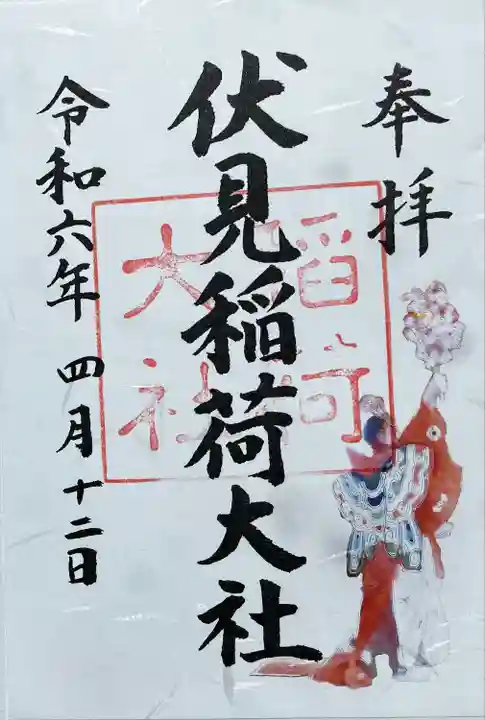 奉拝
伏見稲荷大社
令和六年 四月十二日
稲荷
大社